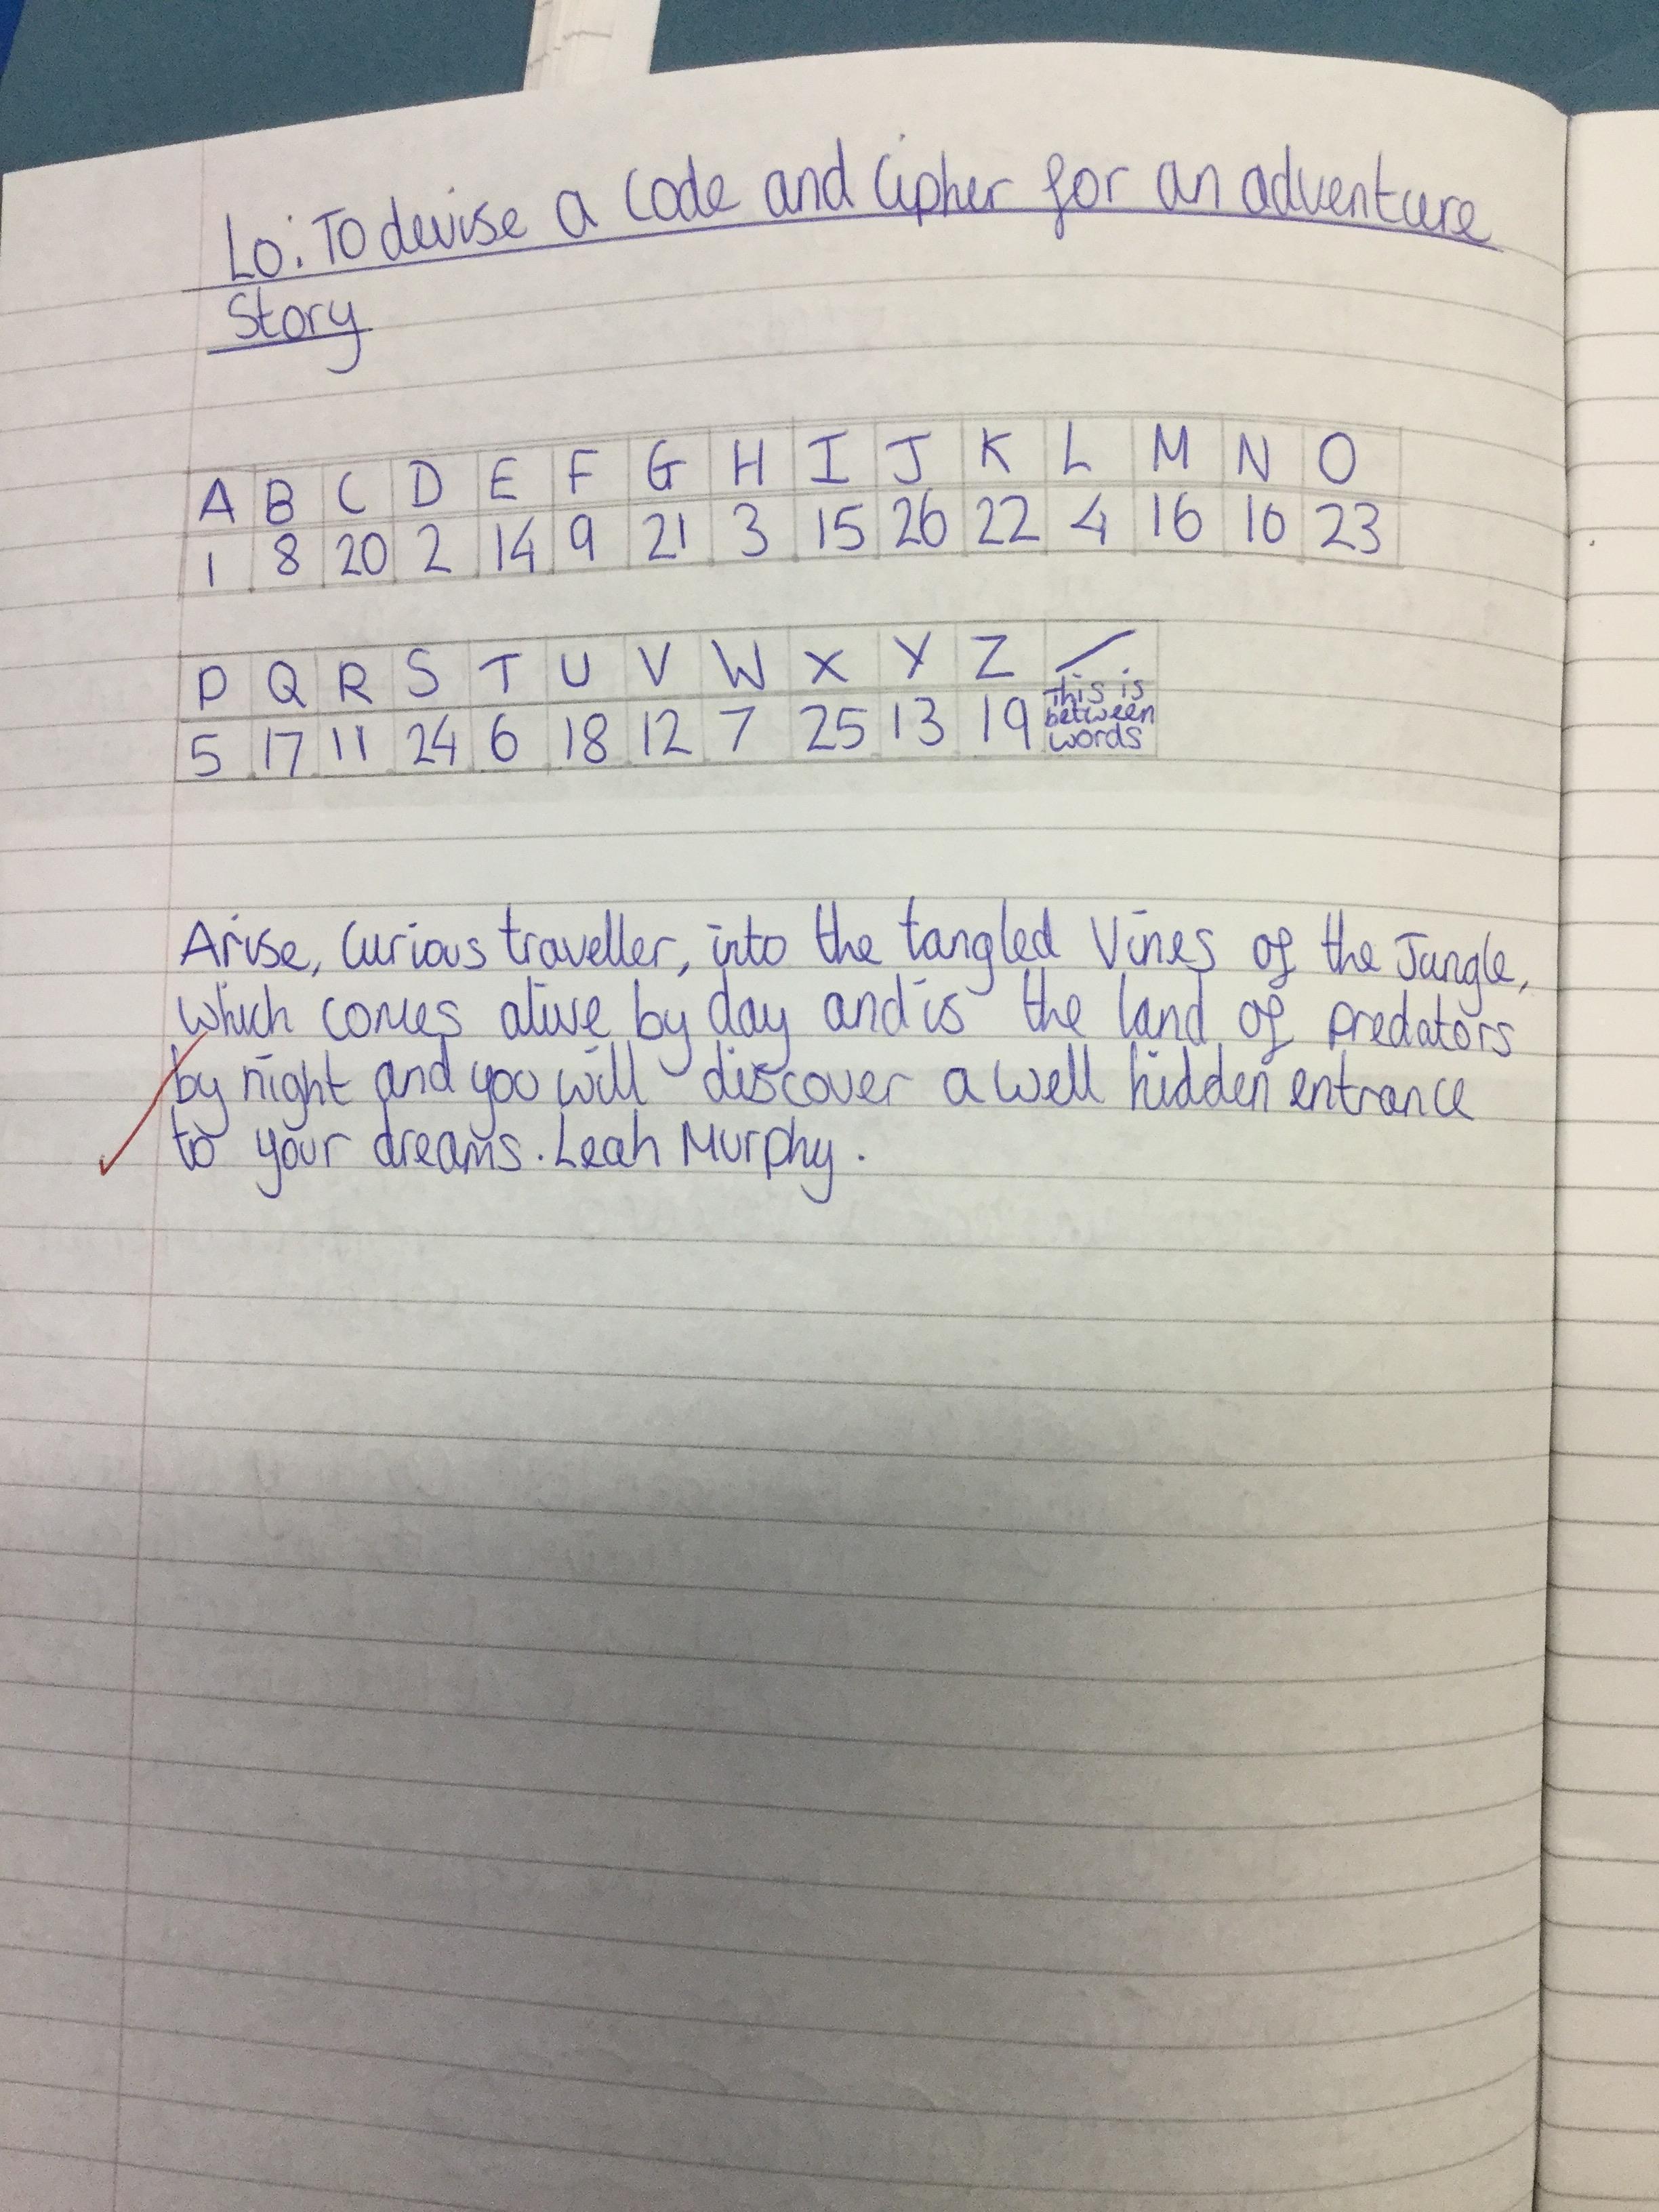 Lo: To devise a Code and Cipher for an adventure
Story
A B C D E F G H I J K L M N O
1 8 20 2 14 9 21 3 15 26 22 4 16 10 23
P Q R S T U V W X Y Z /
5 17 11 24 6 18 12 7 25 13 19 This is
between
words
Arise, Curious traveller, into the tangled Vines of the Jungle,
which comes alive by day and is the land of predators
by night and you will discover a well hidden entrance
to your dreams. Leah Murphy.